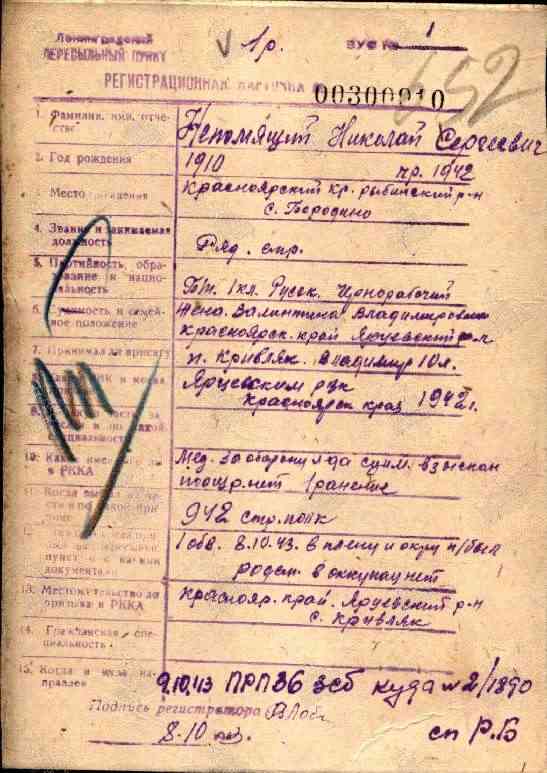 Ленинградский
ПЕРЕСЫЛЬНЫЙ ПУНКТ
V 1р.
ВУС № 1
652
РЕГИСТРАЦИОННАЯ КАРТОЧКА
00300910
1. Фамилия, имя, отче-
ство
Непомящий Николай Сергеевич
2. Год рождения
1910 пр. 1942
Место рождения
Красноярский кр. рыбинский р-н
с. Бородино
4. Звание и занимаемая
должность
Ряд. стр.
5. Партийность, обра-
зование и нацио-
нальность
Б/п. 1 кл. Русск. Чернорабочий
6. и семей-
ное положение
Жена. Валинтина Владимировна
Красноярск. край Ярцевский р-н
п. Кривляк. Владимир 10 л.
7. Принимал ли присягу
Ярцевским рвк
Красноярск край 1942 г.
специальность
10. Какие имеет ли
в РККА
Мед. За оборону л-да сним. взыскан
поощр. нет 1 ранение
11. Когда
942 стр. полк
12.
пункт и с какими
документами
1 обв. 8.10.43. в плену и окру н/был
родств. в оккупац нет
13. Местожительство до
призыва в РККА
Краснояр. край. Ярцевский р-н
с. Кривляк
14. Гражданская спе-
циальность
15. Когда и куда на-
правлен
9.10.43 ПРП 36 зсб куда № 2/1890
Подпись регистратора
8.10 сп Р.Б